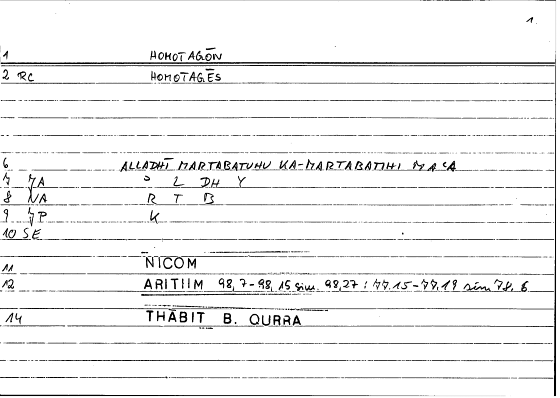 1.
1 HOMOTAGŌN
2 RC HOMOTAGĒS
6 ALLADHĪ MARTABATUHU KA-MARTABATIHI MACA
7 JA ᵓ L DH Y
8 NA R T B
9 JP K
10 SE
11 NICOM
12 ARITIIM 98,7-98,15 sim. 98,27 : 77.15-77.19 sim 78.6
14 THĀBIT B. QURRA